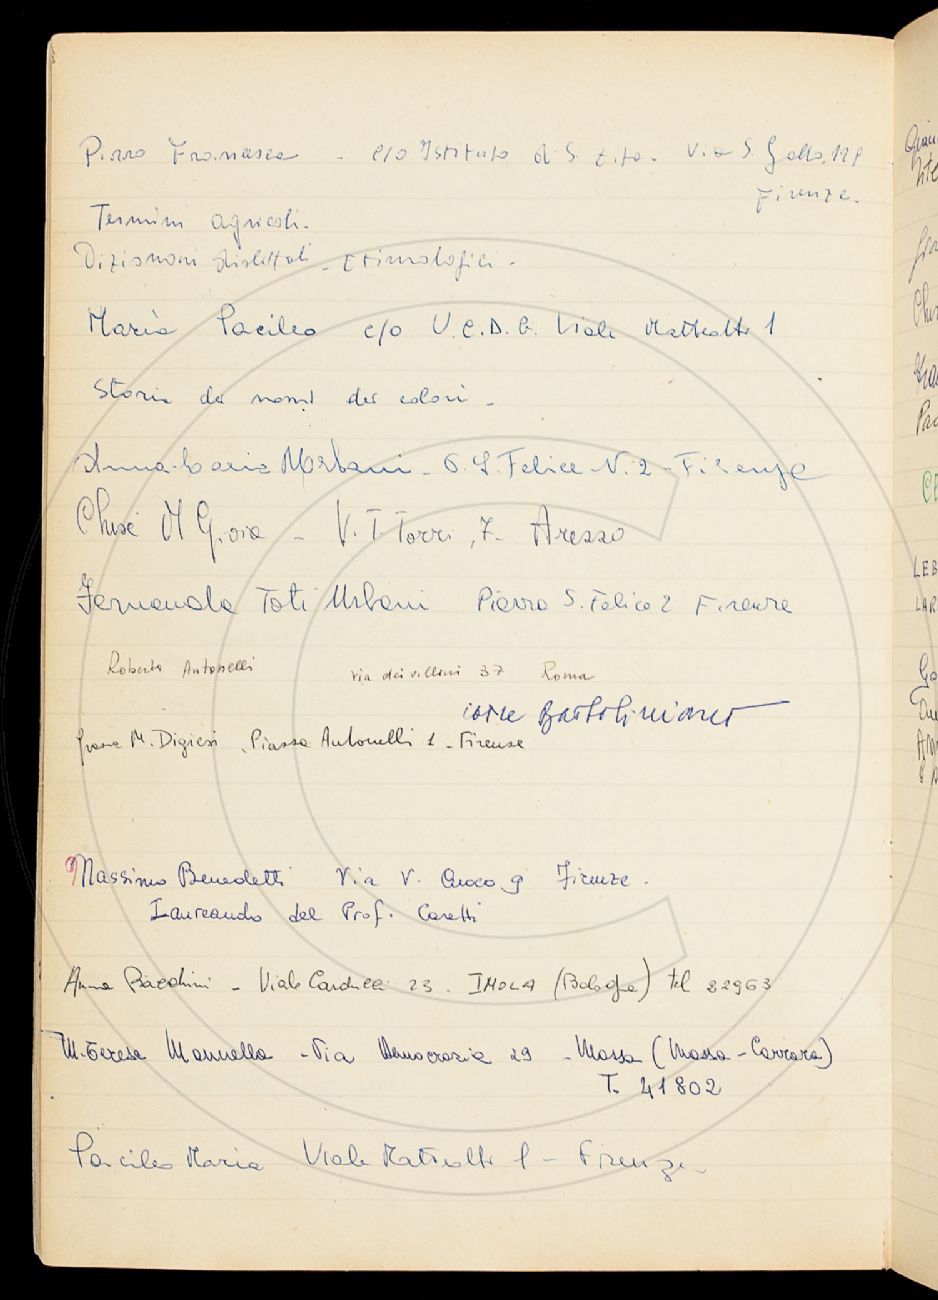 Pirro Francesca - c/o Istituto di S. Zita - Via S. Gallo,
Firenze.
Termini agricoli.
Dizionari dialettali - Etimologici -
Maria Pacileo c/o U.C.D.G. Viale Matteotti 1
Storia dei nomi dei colori -
Anna Maria Urbani - S. Felice N. 2 - Firenze
Chisè M Gioia - V. T. Torri, 7. Arezzo
Fernanda Toti Urbani Piazza S. Felice 2 Firenze
Roberto Antonelli via dei villini 37 Roma
Grazia M. Digiesi, Piazza Antonelli 1 - Firenze
Massimo Benedetti Via V. Cuoco 9 Firenze.
Laureando del Prof. Caretti
Anna Bacchini - Viale Carducci 23. IMOLA (Bologna) tel 22963
M. Teresa Mannella - Via Democrazia 29 - Massa (Massa - Carrara)
T. 41802
Pacileo Maria Viale Matteotti 1 - Firenze
LEB
LAR